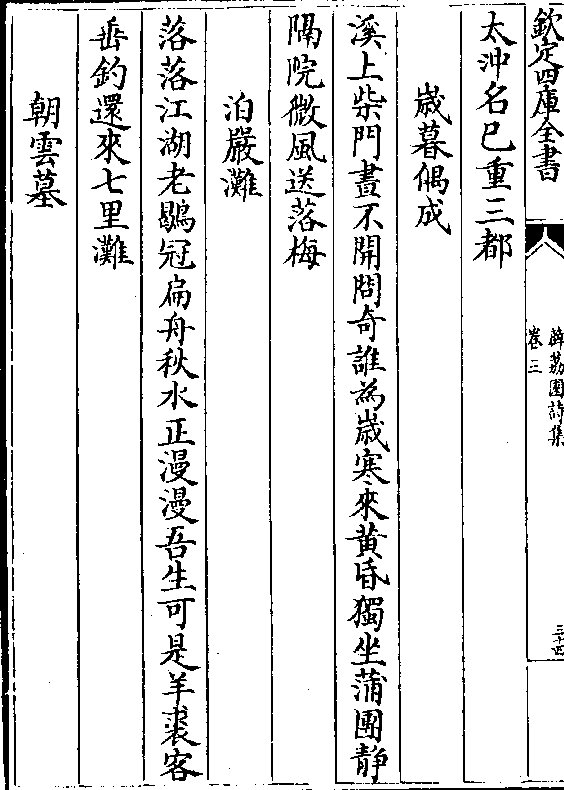 欽定四庫全書
薜荔園詩集
卷三
三十四
太沖名已重三都
歲暮偶成
溪上柴門晝不開問奇誰為歲寒來黃昏獨坐蒲團靜
隔院微風送落梅
泊嚴灘
落落江湖老鶡冠扁舟秋水正漫漫吾生可是羊裘客
垂釣還來七里灘
朝雲墓